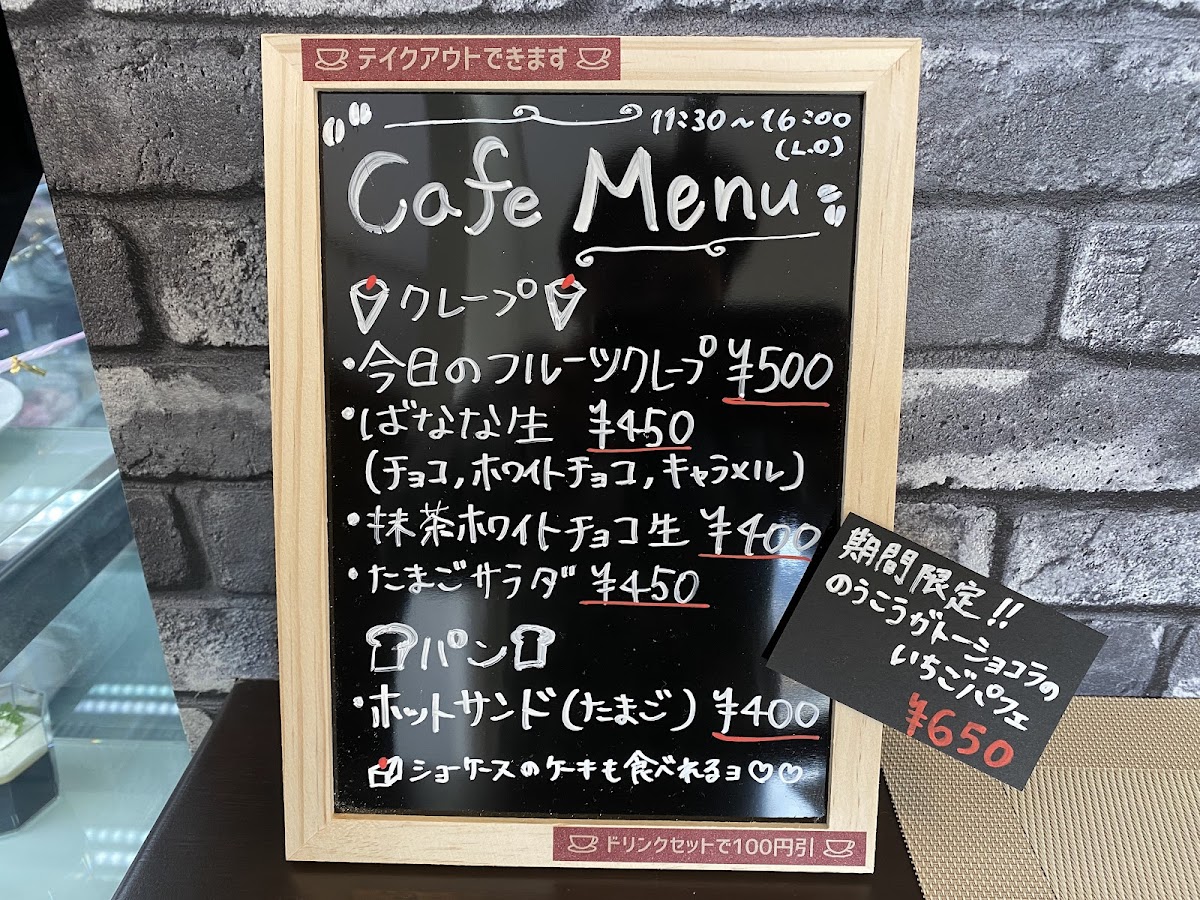 テイクアウトできます
11:30～16:00
(L.O)
Cafe Menu
クレープ
・今日のフルーツクレープ ¥500
・ばなな生 ¥450
(チョコ,ホワイトチョコ,キャラメル)
・抹茶ホワイトチョコ生 ¥400
・たまごサラダ ¥450
パン
・ホットサンド(たまご) ¥400
ショーケースのケーキも食べれるョ♡♡
ドリンクセットで100円引
期間限定!!
のうこうガトーショコラの
いちごパフェ
¥650